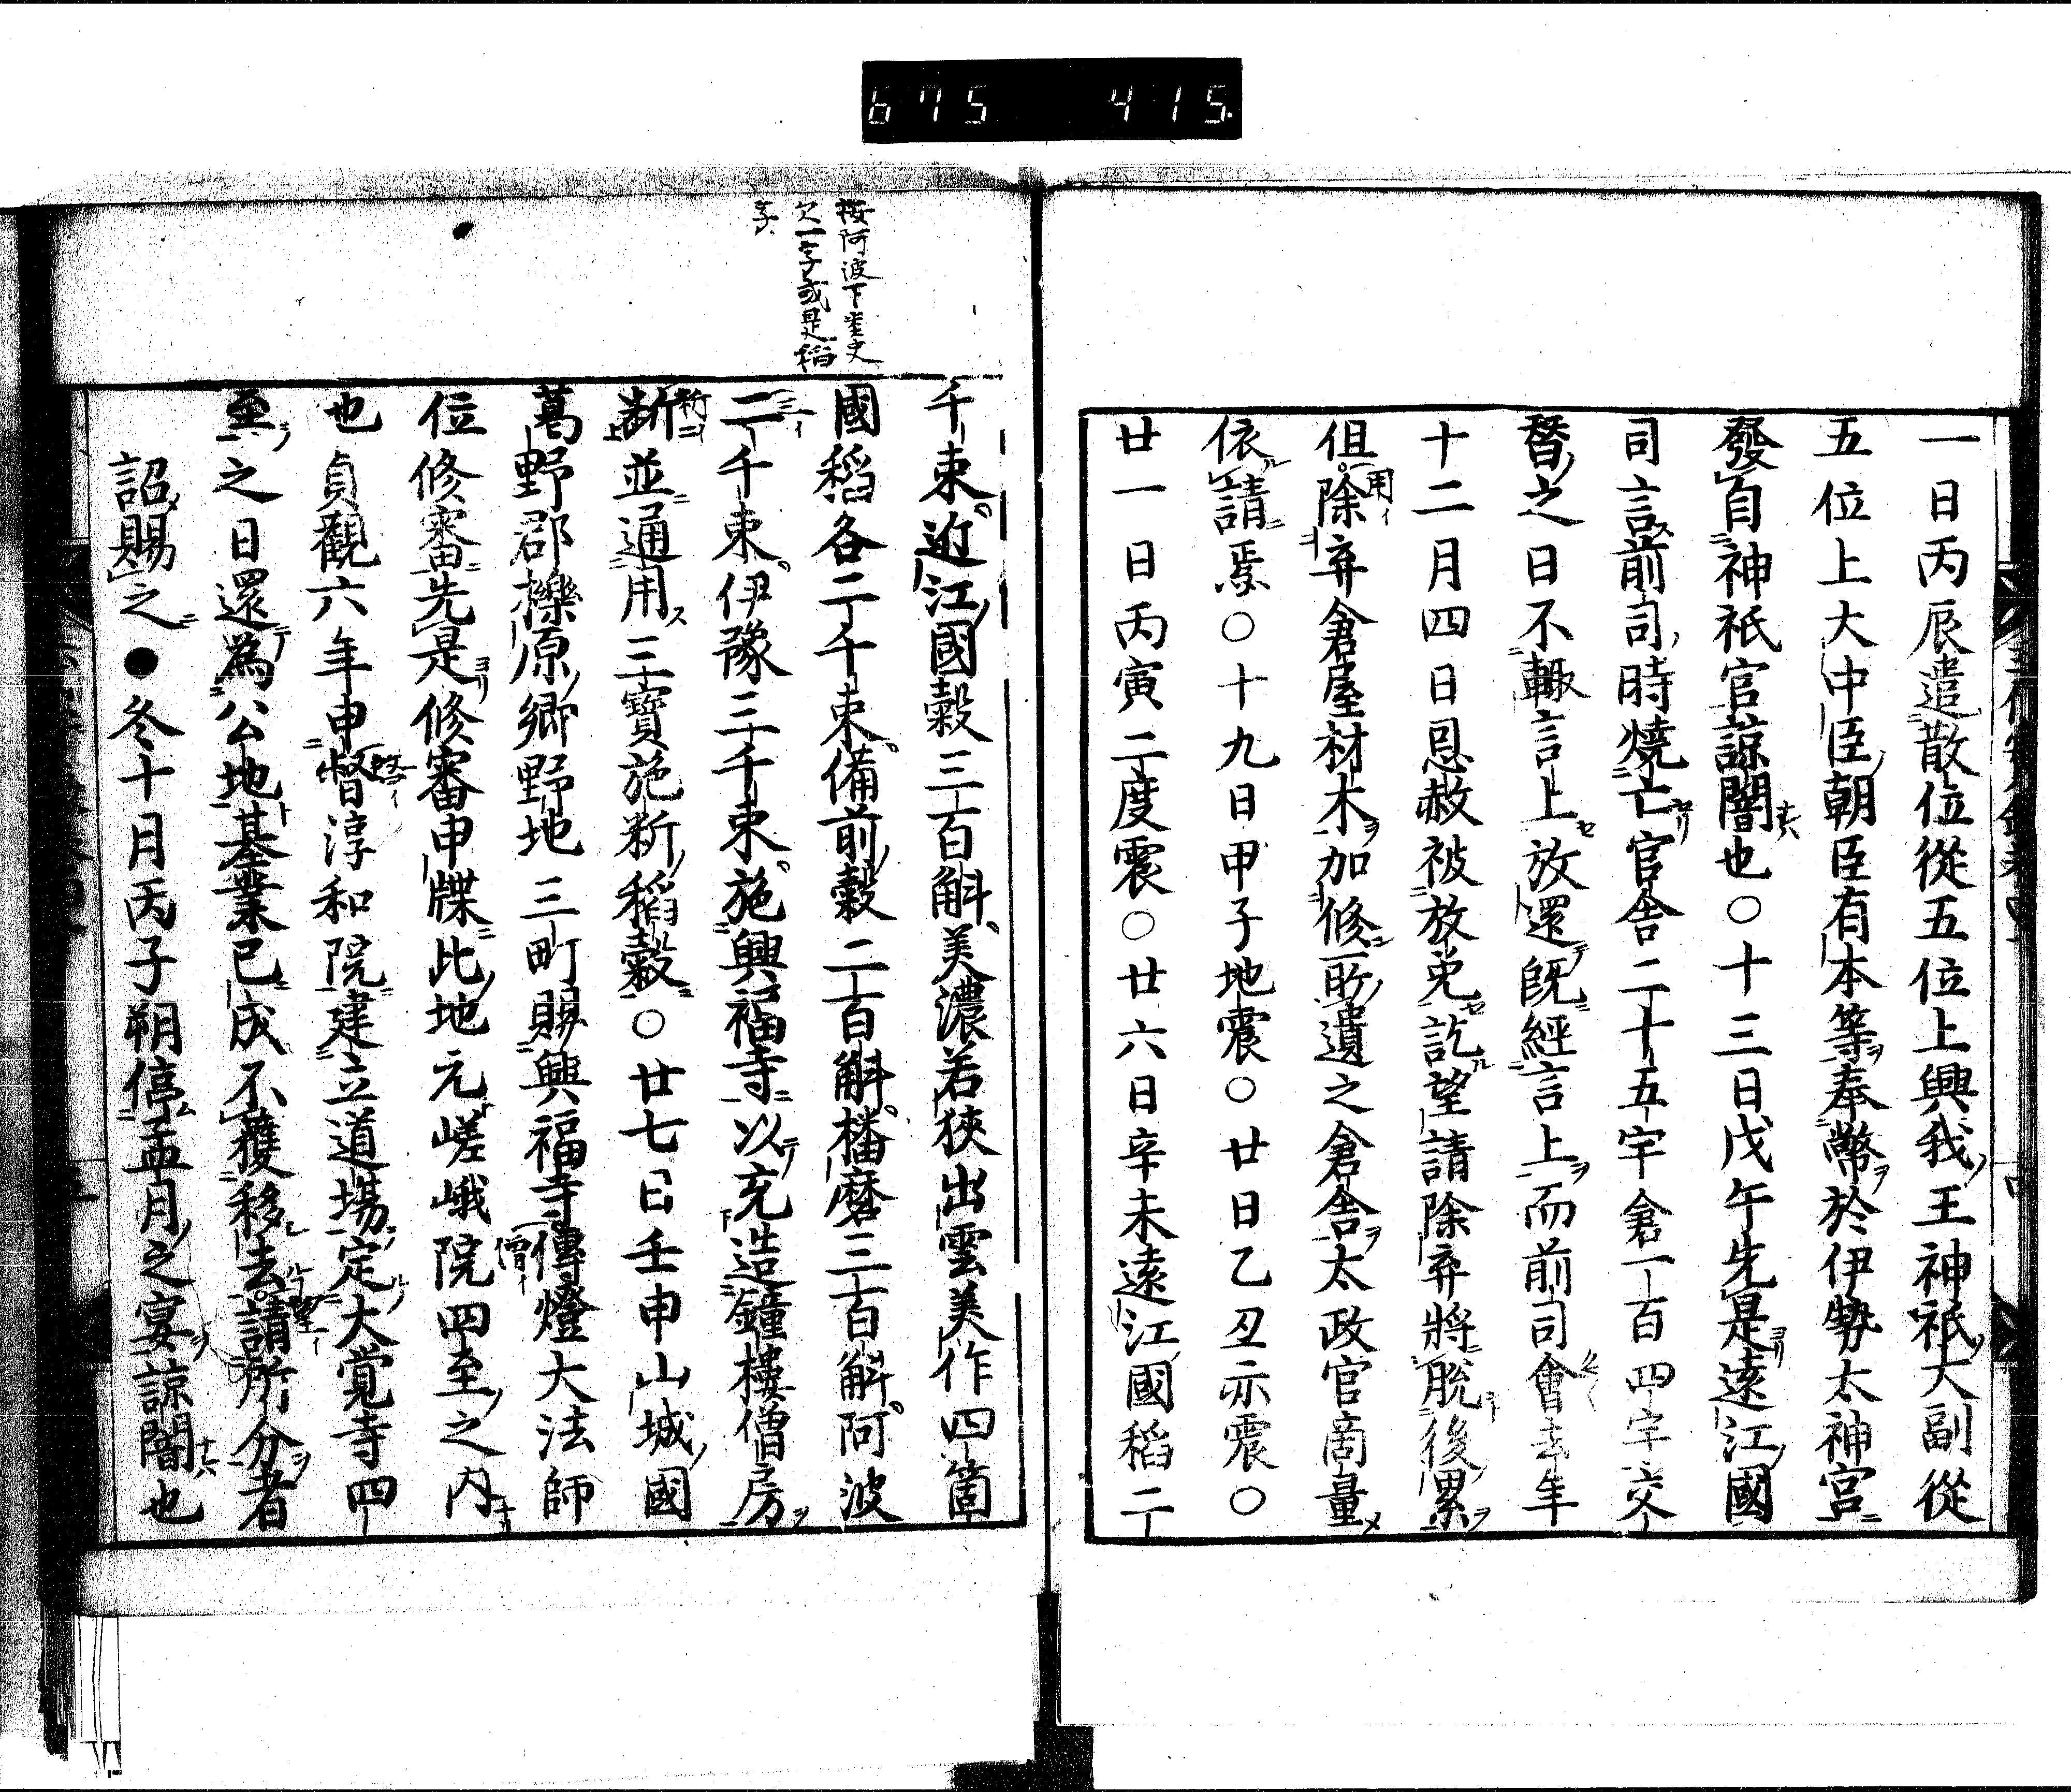 675 415
一日丙辰遣散位從五位上興我王神祇大副從
五位上大中臣朝臣有本等奉幣於伊勢太神宮
發自神祇官諒闇也○十三日戊午先是遠江國
司言前司時燒亡官舍二十五宇倉一百四宇交
替之日不輙言上放還既經言上而前司會去年
十二月四日恩赦被放免訖望請除弃將脫後累
但除弃倉屋材木加修所遺之倉舍太政官商量
依請焉○十九日甲子地震○廿日乙丑亦震○
廿一日丙寅二度震○廿六日辛未遠江國稻二
按阿波下塁史
欠一字或是稻
字
千束近江國穀三百斛美濃若狹出雲美作四箇
國稻各二千束備前穀二百斛播磨三百斛阿波
二千束伊豫三千束施興福寺以充造鐘樓僧房
斷並通用三寶施新稻穀○廿七日壬申山城國
葛野郡櫟原鄉野地三町賜興福寺傳燈大法師
位修審先是修審申牒此地元嵯峨院四至之内
也貞觀六年申督淳和院建立道場定大覚寺四
至之日還為公地基業已成不獲移去請所分者
詔賜之●冬十月丙子朔停孟月之宴諒闇也